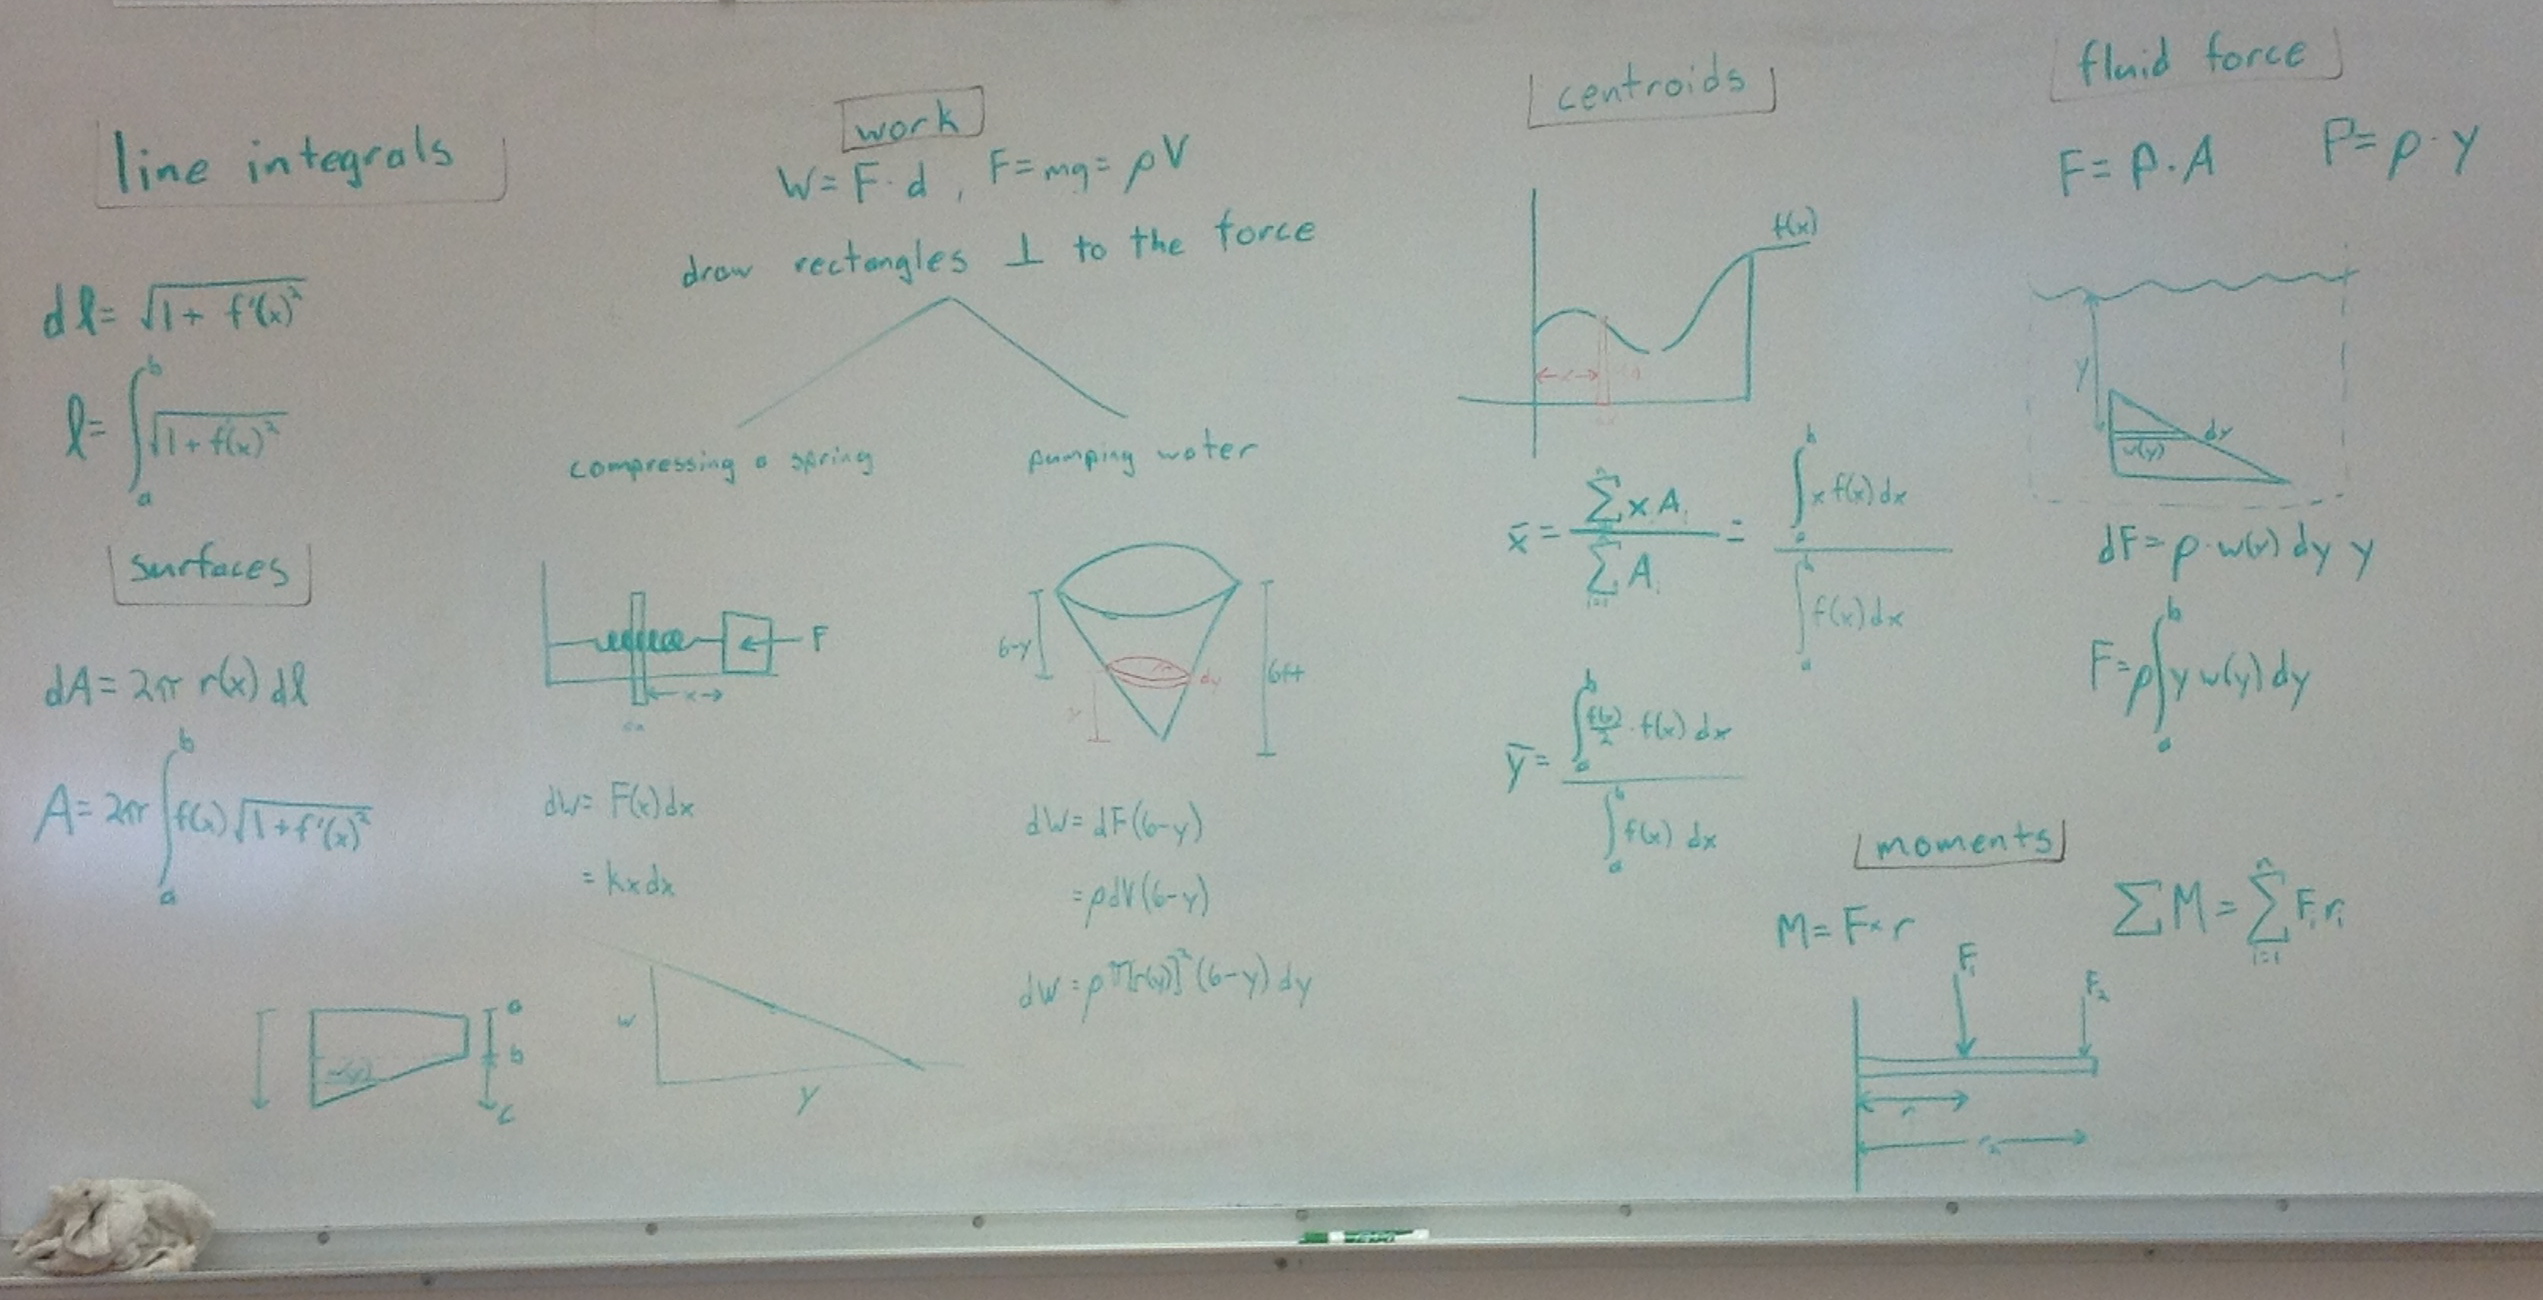 line integrals
dl = √1 + f'(x)²
l = ∫ₐᵇ √1 + f(x)²
surfaces
dA = 2π r(x) dl
A = 2π ∫ₐᵇ f(x) √1 + f'(x)²
a
b
c
work
W = F · d , F = mg = ρV
draw rectangles ⊥ to the force
compressing a spring
F
x
dx
dW = F(x) dx
= kx dx
w
y
pumping water
6-y
6ft
dy
y
dW = dF(6-y)
= ρdV(6-y)
dW = ρπ[r(y)]²(6-y) dy
centroids
f(x)
x
x̄ = ∑ x A / ∑ᵢ₌₁ⁿ Aᵢ = ∫ₐᵇ x f(x) dx / ∫ₐᵇ f(x) dx
ȳ = ∫ₐᵇ f(x)/2 · f(x) dx / ∫ₐᵇ f(x) dx
fluid force
F = P · A P = ρ · y
y
dy
w(y)
dF = ρ · w(y) dy y
F = ρ ∫ₐᵇ y w(y) dy
moments
M = F × r ∑M = ∑ᵢ₌₁ⁿ Fᵢ rᵢ
F₁
F₂
r
r₂